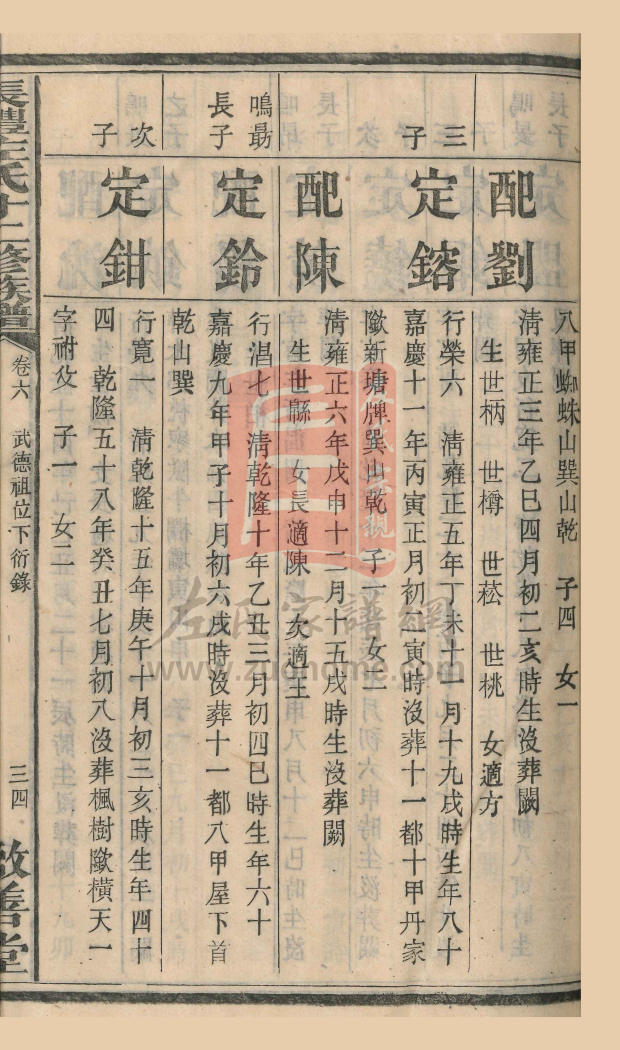 八甲蜘蛛山巽山乾 子四 女一
配劉
清雍正三年乙巳四月初二亥時生沒葬闕
生世柄 世樽 世菘 世桃 女適方
三子
定鎔
行榮六 清雍正五年丁未十一月十九戌時生年八十
嘉慶十一年丙寅正月初二寅時沒葬十一都十甲丹家
歐新塘牌巽山乾 子一 女二
配陳
清雍正六年戊申十二月十五戌時生沒葬闕
生世緜 女長適陳 次適王
鳴最長子
定鈴
行淐七 清乾隆十年乙丑三月初四巳時生年六十
嘉慶九年甲子十月初六戌時沒葬十一都八甲屋下首
乾山巽
次子
定鉗
行寬一 清乾隆十五年庚午十月初三亥時生年四十
四 乾隆五十八年癸丑七月初八沒葬楓樹歐橫天一
字祔父 子一 女二
長醴左氏十二修族譜 卷六 武德祖位下衍錄 三四 敦善堂
左氏家譜網
www.zuohome.com